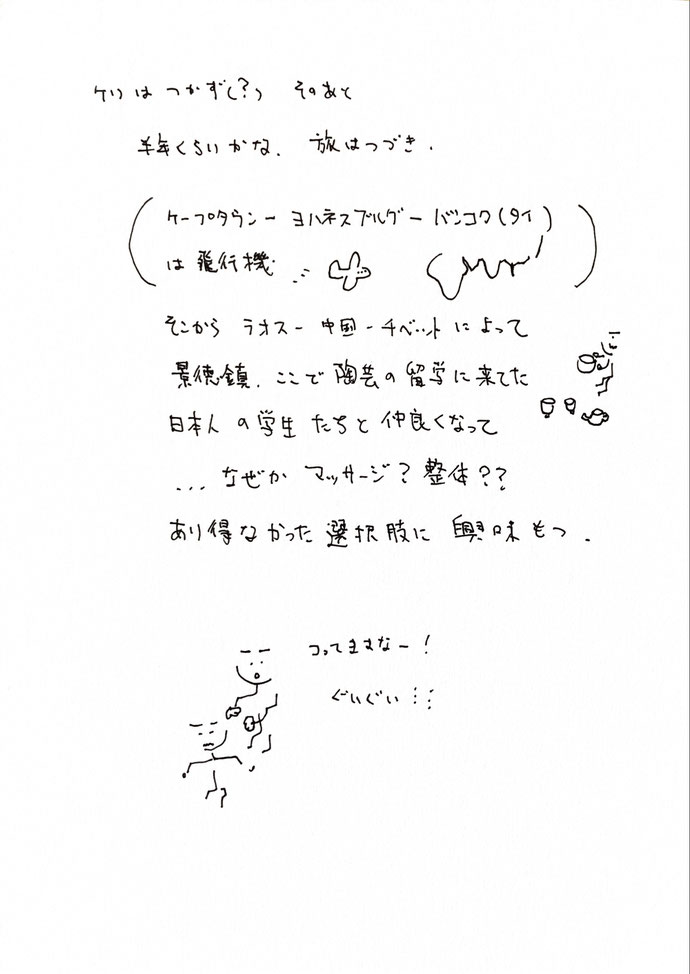 ケリは つかず(?) そのあと
半年くらいかな、旅はつづき.
(ケープタウン ー ヨハネスブルグ ー バンコク(タイ)
は飛行機)
そこから ラオス ー 中国 ー チベット によって
景徳鎮. ここで 陶芸の 留学に来てた
日本人 の学生 たちと 仲良くなって
... なぜか マッサージ? 整体??
あり得なかった 選択肢に 興味もつ.
コってますなー!
ぐいぐい